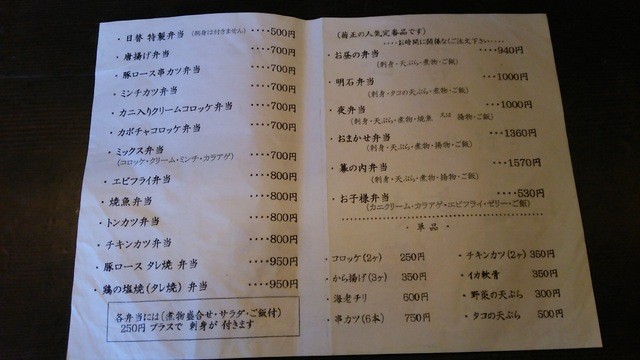 ・日替 特製 弁当 (刺身は付きません) ････500円
・唐揚げ弁当 ････700円
・豚ロース串カツ弁当 ････700円
・ミンチカツ弁当 ････700円
・カニ入りクリームコロッケ弁当 ････700円
・カボチャコロッケ弁当 ････700円
・ミックス弁当 ････700円
(コロッケ・クリーム・ミンチ・カラアゲ)
・エビフライ弁当 ････800円
・焼魚弁当 ････800円
・トンカツ弁当 ････800円
・チキンカツ弁当 ････800円
・豚ロース タレ焼 弁当 ････950円
・鶏の塩焼(タレ焼) 弁当 ････950円
各弁当には(煮物盛合せ・サラダ・ご飯付)
250円 プラスで 刺身が 付きます
(菊正の人気定番品です)
････お時間に関係なしご注文下さい････
・お昼の弁当 ････940円
(刺身・天ぷら・煮物・ご飯)
・明石弁当 ････1000円
(刺身・タコの天ぷら・煮物・ご飯)
・夜弁当 ････1000円
(刺身・天ぷら・煮物・焼魚 又は 揚物・ご飯)
・おまかせ弁当 ････1360円
(刺身・天ぷら・煮物・揚物・ご飯)
・幕の内弁当 ････1570円
(刺身・天ぷら・煮物・揚物・ご飯)
・お子様弁当 ････530円
(カニクリーム・カラアゲ・エビフライ・ゼリー・ご飯)
・単品・
・コロッケ(2ヶ) 250円 ・チキンカツ(2ヶ) 350円
・から揚げ(3ヶ) 350円 ・イカ軟骨 350円
・海老チリ 600円 ・野菜の天ぷら 300円
・串カツ(6本) 750円 ・タコの天ぷら 500円